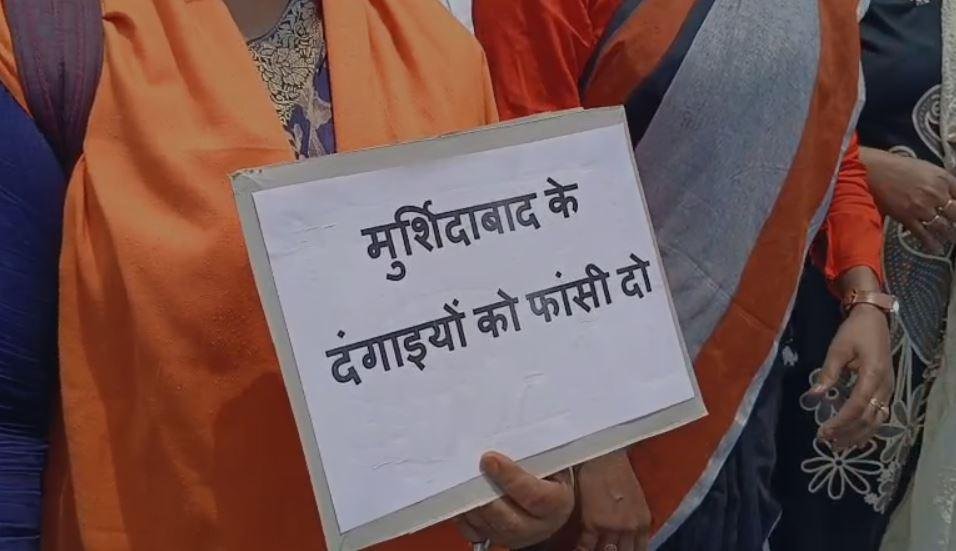 मुर्शिदाबाद के
दंगाइयों को फांसी दो